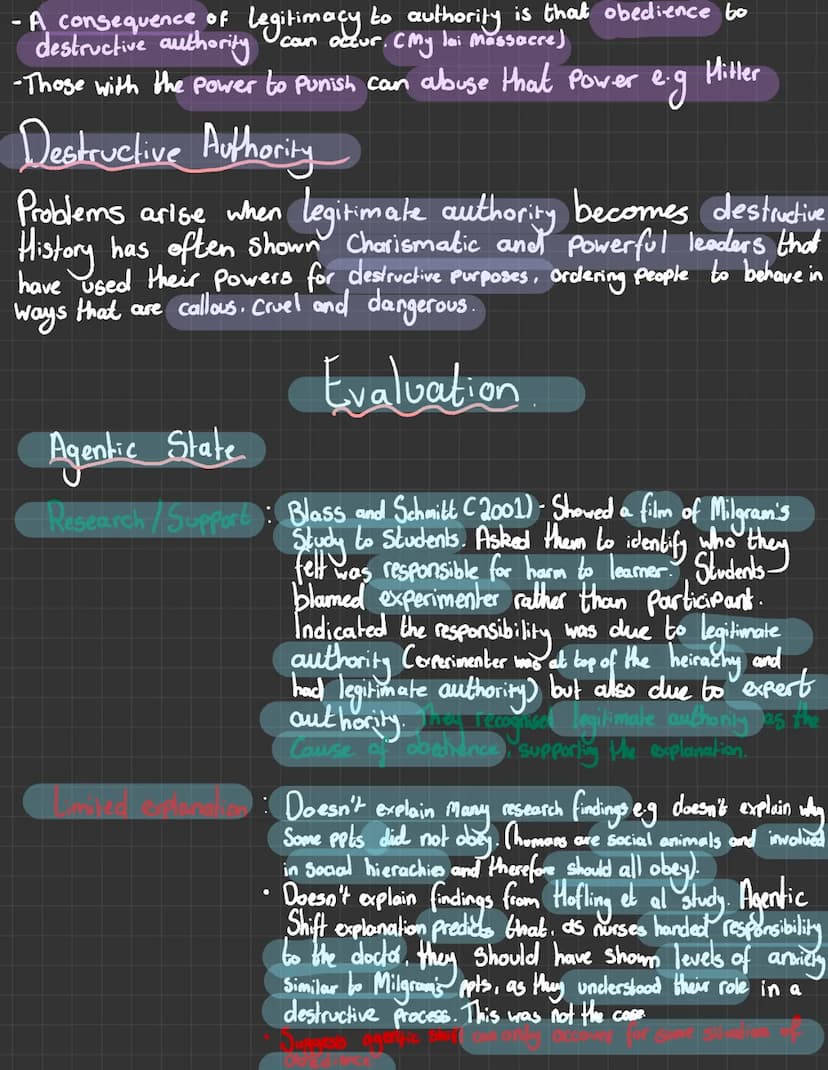 - A consequence of legitimacy to authority is that obedience to
destructive authority can occur. (My lai Massacre)
- Those with the power to punish can abuse that power e.g Hitler
Destructive Authority
Problems arise when legitimate authority becomes destructive
History has often shown charismatic and powerful leaders that
have used their powers for destructive purposes, ordering people to behave in
ways that are callous, cruel and dangerous.
Evaluation.
Agentic State
Research/Support : Blass and Schmitt (2001) - Showed a film of Milgram's
Study to Students. Asked them to identify who they
felt was responsible for harm to learner. Students
blamed experimenter rather than participant.
Indicated the responsibility was due to legitimate
authority (experimenter was at top of the heirachy and
had legitimate authority) but also due to expert
authority. They recognised legitimate authority as the
cause of obedience, supporting the explanation.
Limited explanation : Doesn't explain many research findings e.g doesn't explain why
Some ppts did not obey. (humans are social animals and involved
in social hierachies and therefore should all obey).
• Doesn't explain findings from Hofling et al study. Agentic
Shift explanation predicts that, as nurses handed responsibility
to the doctor, they should have shown levels of anxiety
similar to Milgram's ppts, as they understood their role in a
destructive process. This was not the case
• Suggests agentic shift can only account for some situation of
obedience